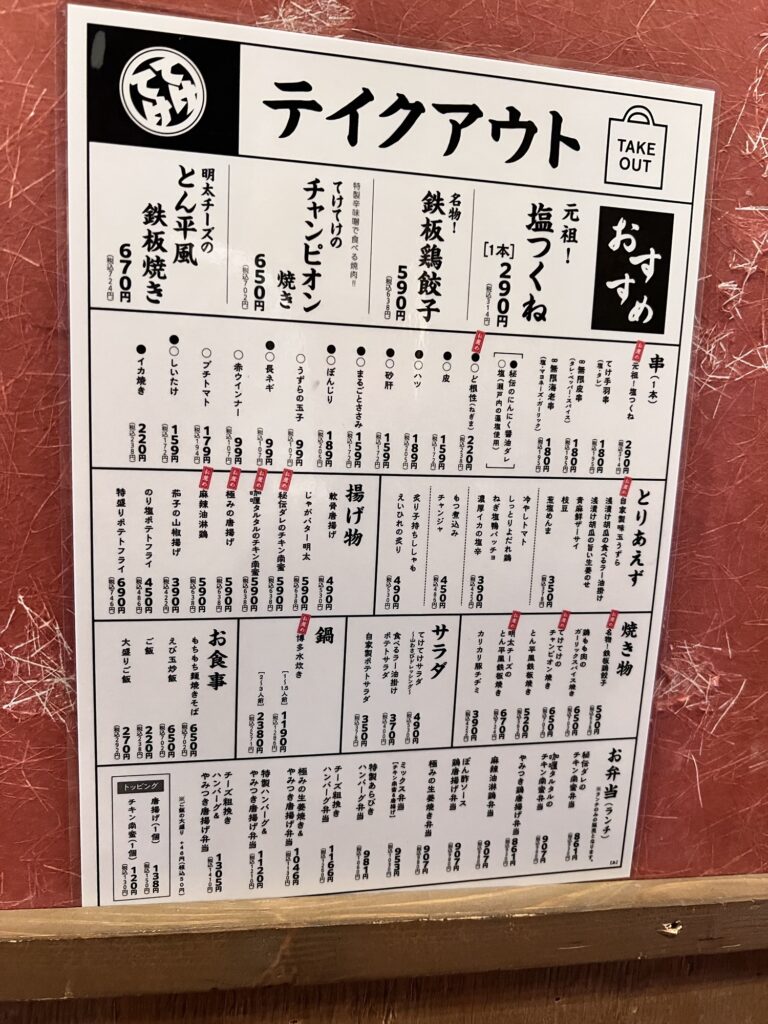 てけてけ
テイクアウト
TAKE
OUT
おすすめ
元祖！
塩つくね
[1本]290円
(税込314円)
名物！
鉄板鶏餃子
590円
(税込638円)
特製辛味噌で食べる焼肉!!
てけてけの
チャンピオン
焼き
650円
(税込702円)
明太チーズの
とん平風
鉄板焼き
670円
(税込724円)
串(1本)
お薦め
元祖！塩つくね 290円
てけ手羽串
(塩・タレ)
180円
∞無限皮串
(タレ・ペッパー・スパイス)
180円
∞無限海老串
(塩・マヨネーズ・ガーリック)
180円
●秘伝のにんにく醤油ダレ
○塩(瀬戸内の藻塩使用)
お薦め
●○ど根性(ねぎま) 220円
●○皮 159円
●ハツ 189円
●○砂肝 159円
●○まるごとささみ 159円
●○ぼんじり 189円
○うずらの玉子 99円
●○長ネギ 99円
○赤ウインナー 99円
○プチトマト 179円
●○しいたけ 159円
●イカ焼き 220円
とりあえず
お薦め
自家製味玉うずら
浅漬け胡瓜の食べるラー油掛け
浅漬け胡瓜の旨い生姜のせ
青麻鮮ザーサイ
枝豆
葱塩めんま
350円
冷やしトマト
しっとりよだれ鶏
ねぎ塩鴨パッチョ
濃厚イカの塩辛
390円
もつ煮込み
チャンジャ
450円
炙り子持ちししゃも
えいひれの炙り
490円
揚げ物
軟骨唐揚げ 490円
じゃがバター明太 590円
お薦め
秘伝ダレのチキン南蛮 590円
お薦め
咖喱タルタルのチキン南蛮 590円
お薦め
極みの唐揚げ 590円
お薦め
麻辣油淋鶏 590円
茄子の山椒揚げ 390円
のり塩ポテトフライ 450円
特盛りポテトフライ 690円
焼き物
お薦め
名物！鉄板鶏餃子 590円
鶏もも肉の
ガーリックスパイス焼き 650円
お薦め
てけてけの
チャンピオン焼き 650円
とん平風鉄板焼き 520円
お薦め
明太チーズの
とん平風鉄板焼き 670円
カリカリ豚チヂミ 390円
サラダ
てけてけサラダ
〜山わさびドレッシング〜
490円
食べるラー油掛け
ポテトサラダ 370円
自家製ポテトサラダ 350円
鍋
お薦め
博多水炊き
[1〜1.5人前] 1190円
[2〜3人前] 2380円
お食事
もちもち麺焼きそば 650円
えび玉炒飯 650円
ご飯 220円
大盛りご飯 270円
お弁当(ランチ)
※ランチのみの販売となります。
秘伝ダレの
チキン南蛮弁当 861円
咖喱タルタルの
チキン南蛮弁当 907円
やみつき鶏唐揚げ弁当 861円
麻辣油淋鶏弁当 907円
ぽん酢ソース
鶏唐揚げ弁当 907円
極みの生姜焼き弁当 907円
ミックス弁当
(チキン南蛮&唐揚げ)
953円
特製あらびき
ハンバーグ弁当 981円
チーズ粗挽き
ハンバーグ弁当 1166円
極みの生姜焼き&
やみつき唐揚げ弁当 1046円
特製ハンバーグ&
やみつき唐揚げ弁当 1120円
チーズ粗挽き
ハンバーグ&
やみつき唐揚げ弁当 1305円
※ご飯の大盛り +46円(税込50円)
トッピング
唐揚げ(1個) 138円
チキン南蛮(1個) 120円